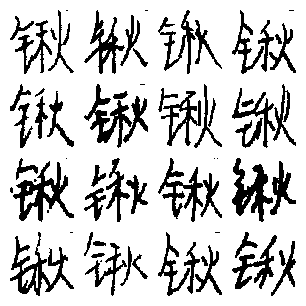 锹锹锹锹
锹锹锹锹
锹锹锹锹
锹锹锹锹